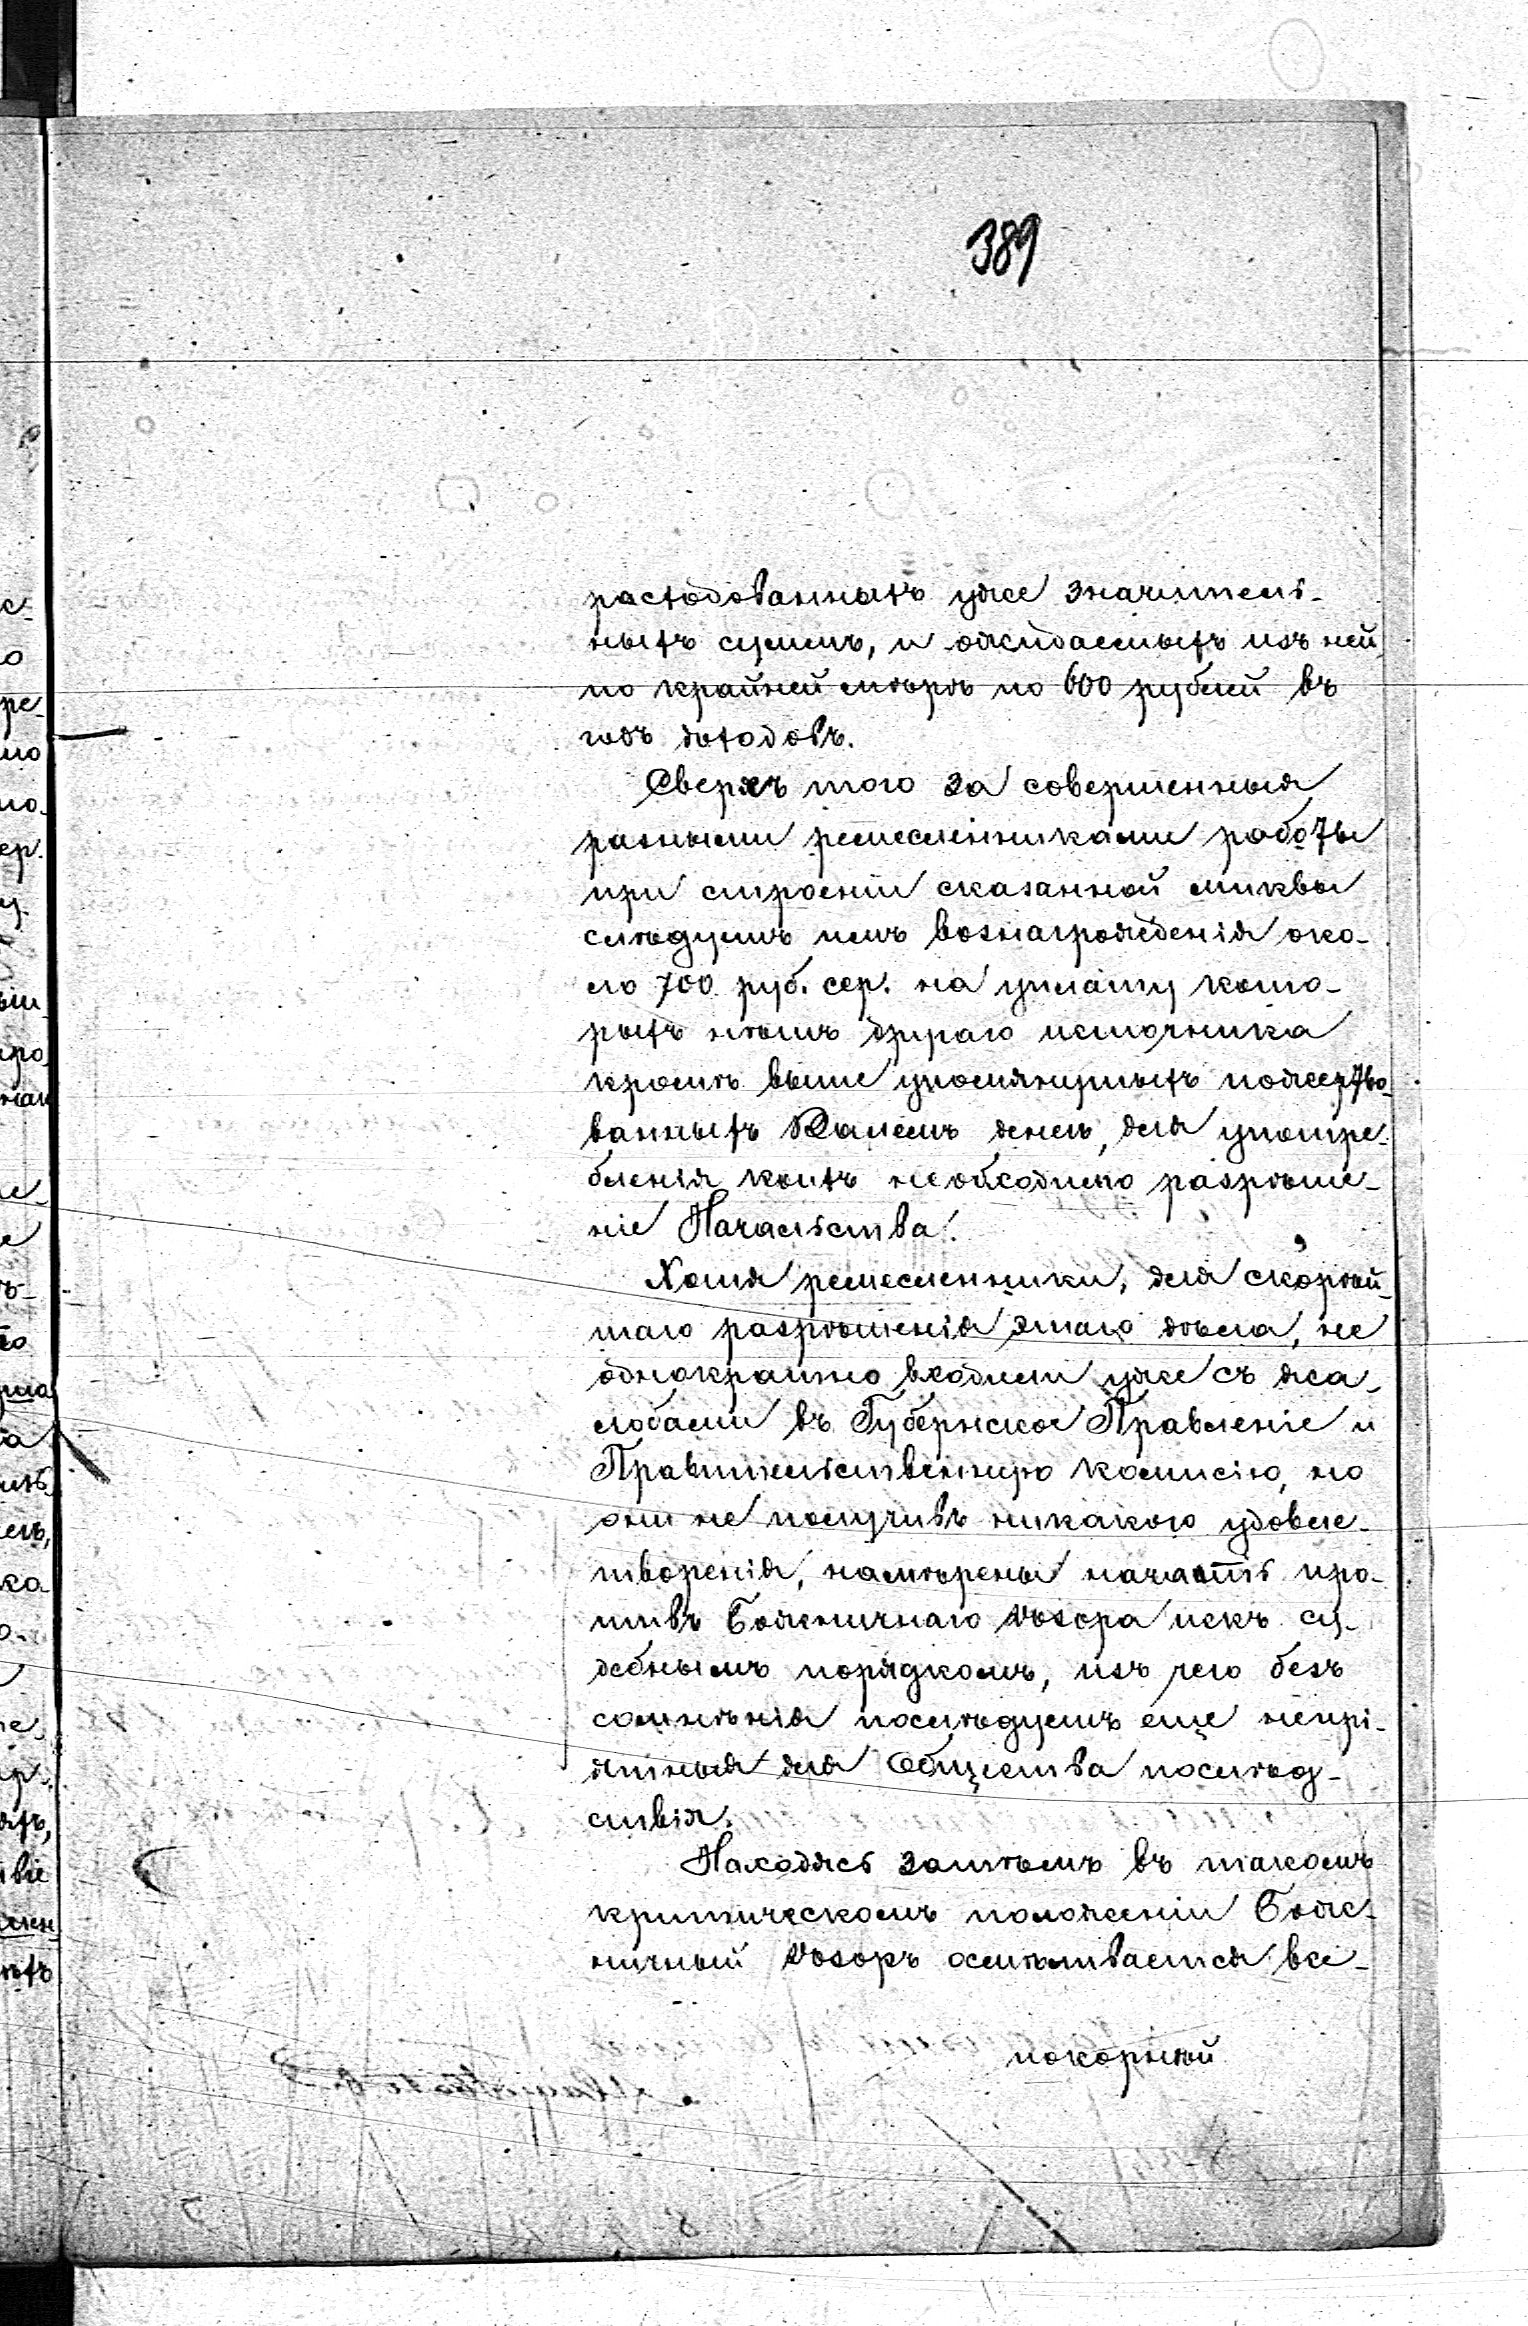 389
расходованныхъ уже значитель-
ныхъ суммъ, и ожидаемыхъ изъ ней
по крайней мѣрѣ по 600 рублей въ
годъ доходовъ.
Сверхъ того за совершенныя
разными ремесленниками работы
при строеніи сказанной миквы
слѣдуетъ имъ вознагражденія око-
ло 700 руб. сер. на уплату кото-
рыхъ нѣтъ другаго источника
кромѣ выше упомянутыхъ пожертво-
ванныхъ денегъ, для употре-
бленія коихъ необходимо разрѣше-
ніе Начальства.
Хотя ремесленники, для скорѣй-
шаго разрѣшенія этаго дѣла, не
однократно входили уже съ жа-
лобами въ Губернское Правленіе и
Правительственную комисію, но
они не получивъ никакого удовле-
творенія, намѣрены начать про-
тивъ Божничнаго Дозора искъ су-
дебнымъ порядкомъ, изъ чего безъ
сомнѣнія послѣдуетъ еще непрі-
ятныя для Общества послѣд-
ствія.
Находясь затѣмъ въ такомъ
критическомъ положеніи Бож-
ничный Дозоръ осмѣливается все-
покорнѣй